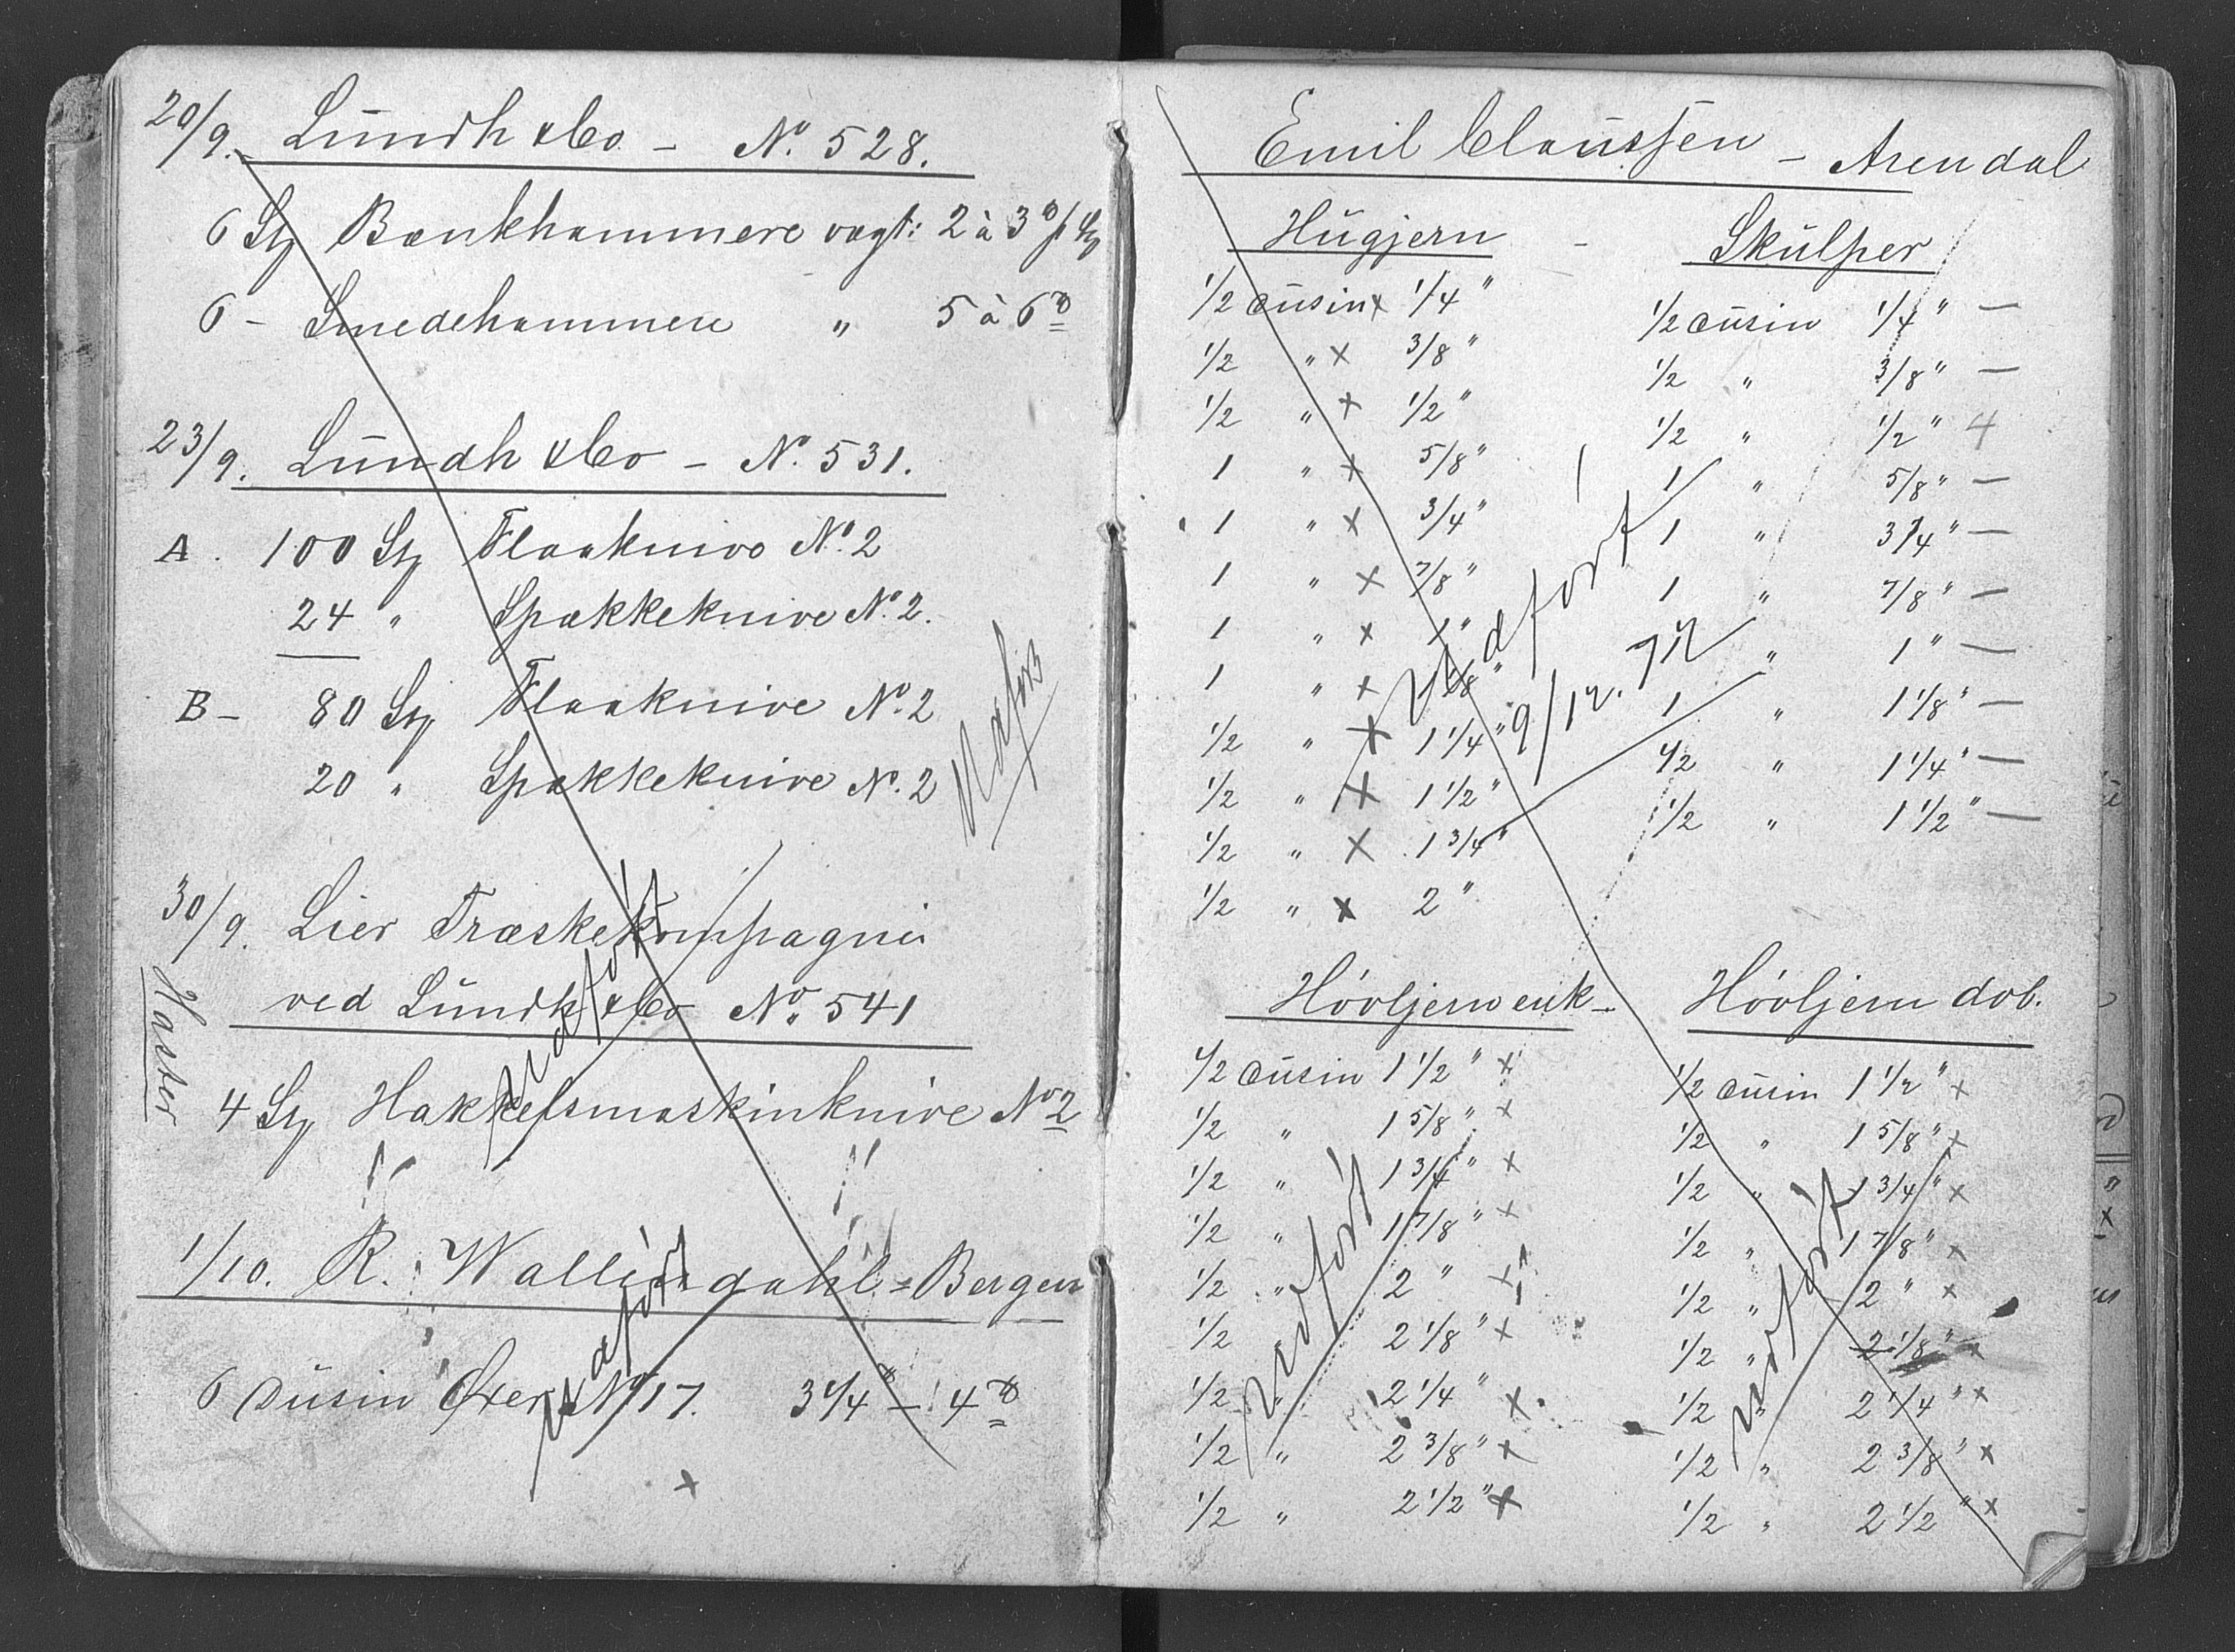 20/9. Lündh & Co - No. 528.
6 Stz Bænkhammere vægt: 2 à 3 ℔ pr Stz
6 - Smedehammere " 5 à 6 ℔
23/9. Lündh & Co - No. 531.
A. 100 Stz Flaaknive No. 2
24 " Spækkeknive No. 2.
B - 80 Stz Flaaknive No. 2
20 " Spækkeknive No. 2
Udført
30/9. Lier Træskekompagni
ved Lündh & Co No. 541
Haster
4 Stz Hakkelsmaskinknive No 2
Udført
1/10. R. Wallendahl = Bergen
6 Düsin Øxer No 17. 3 1/4 - 4 ℔
Udført
x
Emil Claüssen - Arendal
Hügjern - Skülper
1/2 Düsin x 1/4"
1/2 " x 3/8"
1/2 " x 1/2"
1 " x 5/8"
1 " x 3/4"
1 " x 7/8"
1 " x 1"
1 " x 1 1/8"
1/2 " x 1 1/4"
1/2 " x 1 1/2"
1/2 " x 1 3/4"
1/2 " x 2"
1/2 Düsin 1/4" —
1/2 " 3/8" —
1/2 " 1/2" 4
1 " 5/8" —
1 " 3/4" —
1 " 7/8" —
1 " 1" —
1 " 1 1/8" —
1/2 " 1 1/4" —
1/2 " 1 1/2" —
Udført
9/12. 92
Hövljern enk - Hövljern dob.
1/2 Düsin 1 1/2" x
1/2 " 1 5/8" x
1/2 " 1 3/4" x
1/2 " 1 7/8" x
1/2 " 2" x
1/2 2 1/8" x
1/2 " 2 1/4" x
1/2 " 2 3/8" x
1/2 " 2 1/2" x
Udført
1/2 Düsin 1 1/2" x
1/2 " 1 5/8" x
1/2 " 1 3/4" x
1/2 " 1 7/8" x
1/2 " 2" x
1/2 " 2 1/8" x
1/2 " 2 1/4" x
1/2 " 2 3/8" x
1/2 " 2 1/2" x
Udført